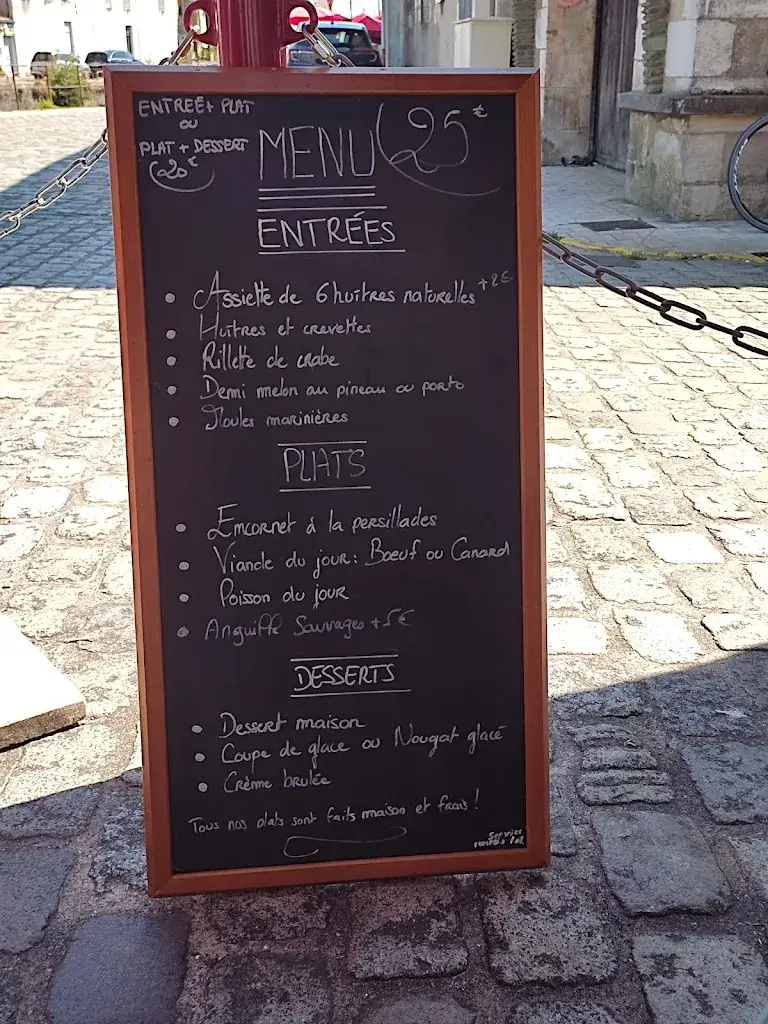 ENTREE + PLAT
ou
PLAT + DESSERT
20€
MENU 25€
ENTRÉES
• Assiette de 6 huîtres naturelles +2€
• Huîtres et crevettes
• Rillette de crabe
• Demi melon au pineau ou porto
• Moules marinières
PLATS
• Encornet à la persillades
• Viande du jour: Bœuf ou Canard
• Poisson du jour
• Anguille Sauvages +5€
DESSERTS
• Dessert maison
• Coupe de glace ou Nougat glacé
• Crème brulée
Tous nos plats sont faits maison et frais !
Service